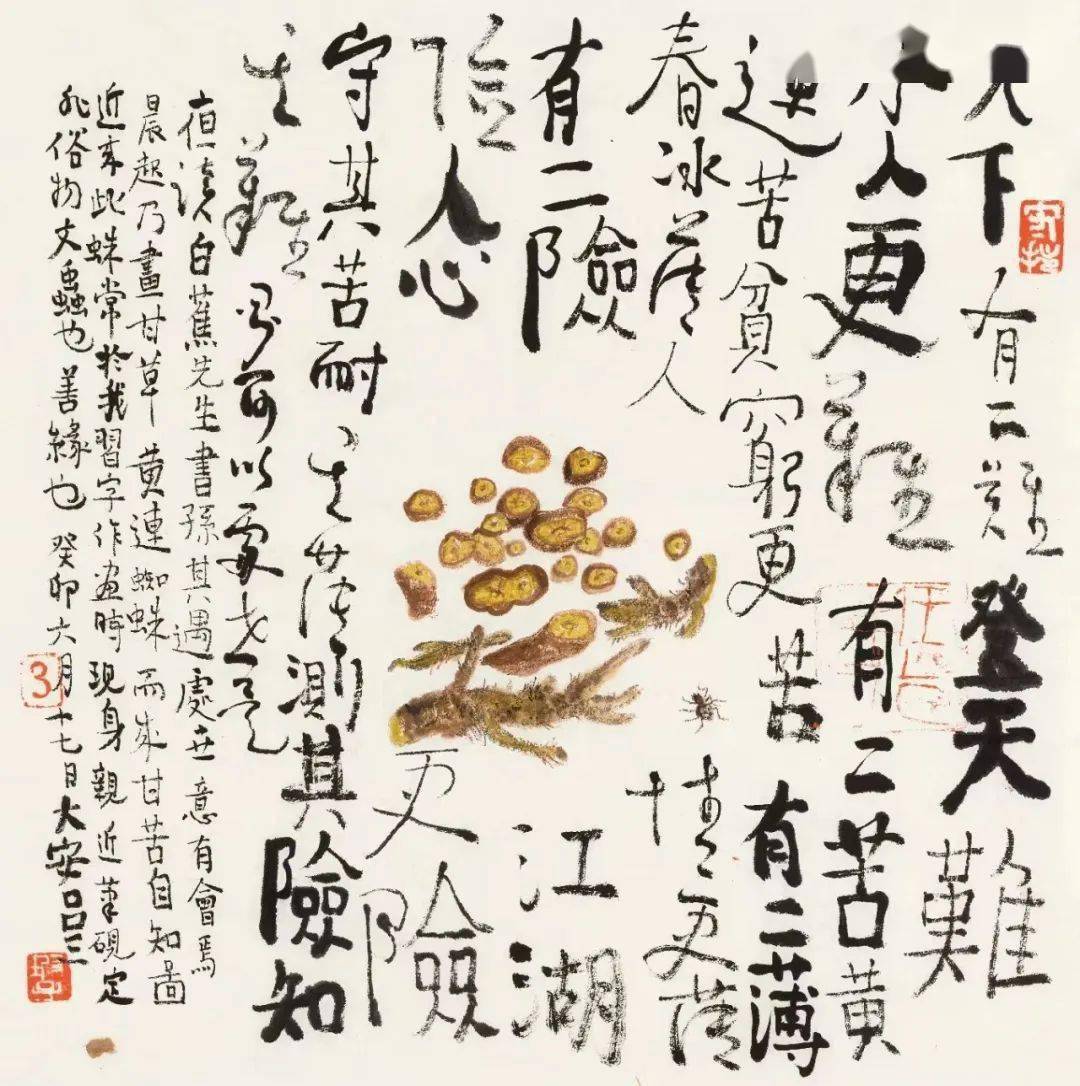 天下有二難登天難
求人更難有二苦黃
連苦貧窮更苦有二薄
春冰薄人情更薄
有二險江湖
險人心更險
守其苦耐其薄測其險知
其難可以處世
夜讀白蕉先生書孫其遇處世意有會焉
晨起乃畫甘草黃連蜘蛛而成甘苦自知圖
近來此蛛常於我習字作畫時現身親近筆硯定
非俗物文蟲也善緣也癸卯六月十七日大安呂三
3